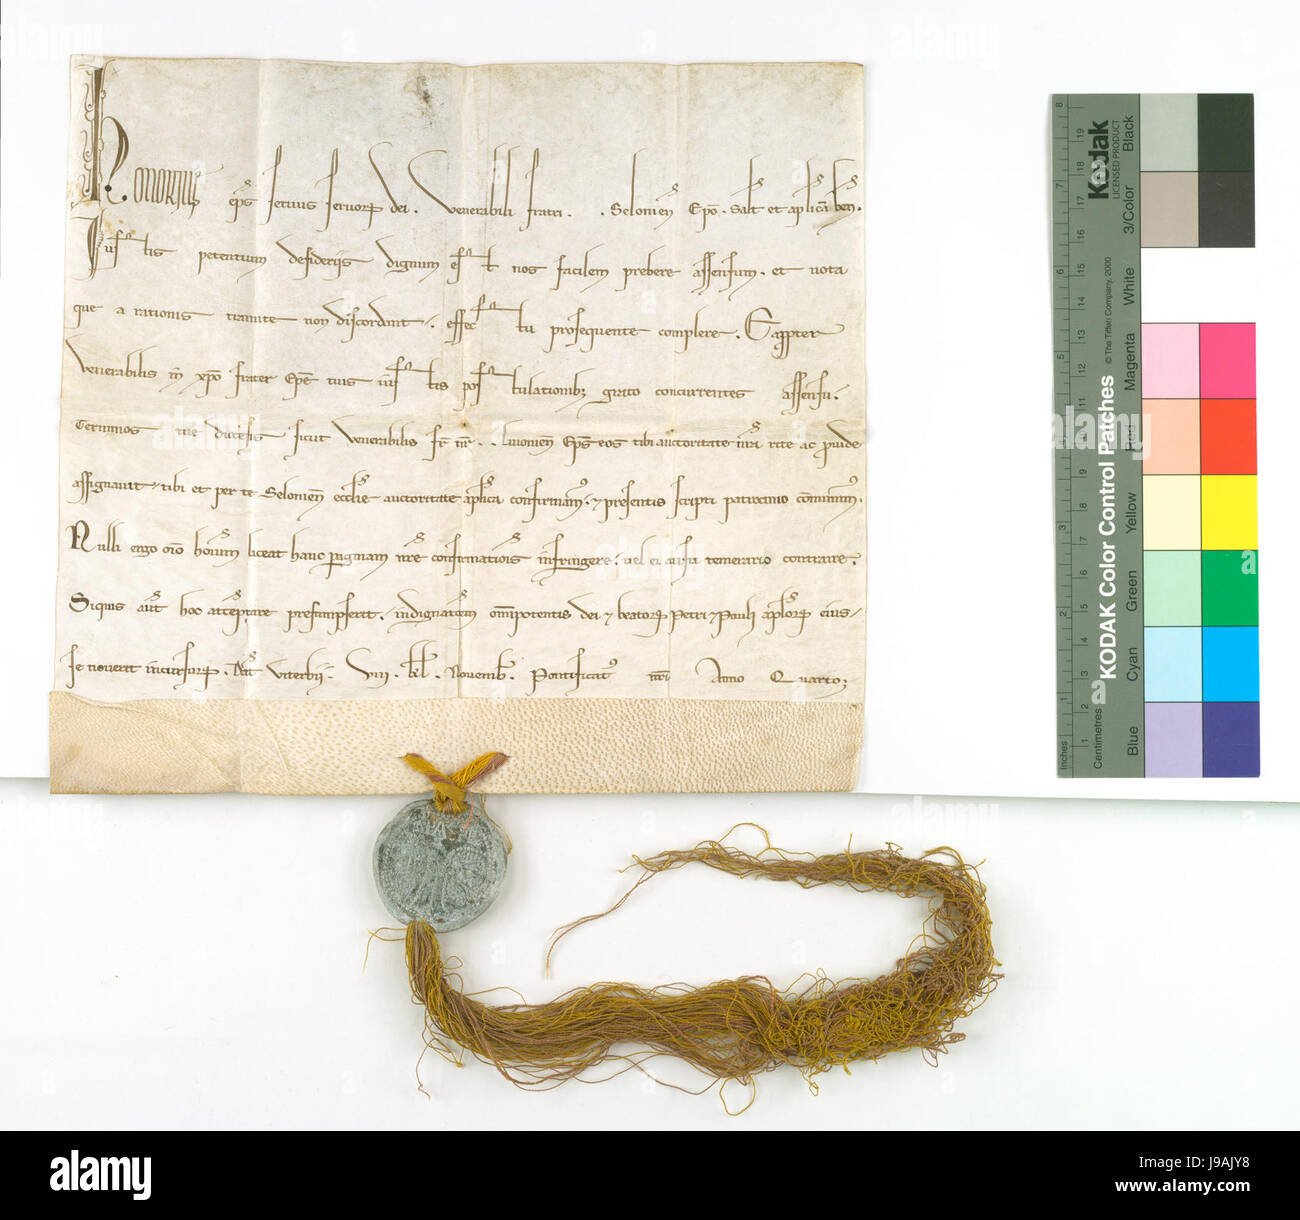 Honorius ep̄s seruus seruoꝝ dei. Venerabili fratri. . Selonien̄ Ep̄o. Salt̄ et apl̄icā ben̄.
Iustis petentium desideriis dignum est nos facilem prebere assensum. et uota
que a rationis tramite non discordant. effectu prosequente complere. Eapropter
Venerabilis in xp̄o frater Ep̄e tuis iustis postulationibꝫ grato concurrentes assensu.
Terminos tue diocesis sicut Venerabilis fr̄ nr̄. . Liuonien̄ Ep̄s eos tibi auctoritate nr̄a rite ac prouide
assignauit tibi et per te Selonien̄ eccl̄ie auctoritate apl̄ica confirmam̄. ⁊ presentis scripti patrocinio com̄unim̄.
Nulli ergo om̄io hom̄inum liceat hanc paginam nr̄e confirmationis infringere. uel ei ausu temerario contraire.
Siquis aut̄ hoc attemptare presumpserit. indignationem om̄ipotentis dei ⁊ beatoꝝ Petri ⁊ Pauli apl̄oꝝ eius
se nouerit incursuꝝ. Dat̄ Viterbii. VIII. kl̄. Nouemb̄. Pontificat̄ nr̄i Anno Quarto
Kodak
LICENSED PRODUCT
KODAK Color Control Patches
© The Tiffen Company, 2000
Inches
Centimetres
1 2 3 4 5 6 7 8
1 2 3 4 5 6 7 8 9 10 11 12 13 14 15 16 17 18 19
Blue Cyan Green Yellow Red Magenta White 3/Color Black
alamy
Image ID: J9AJY8
www.alamy.com